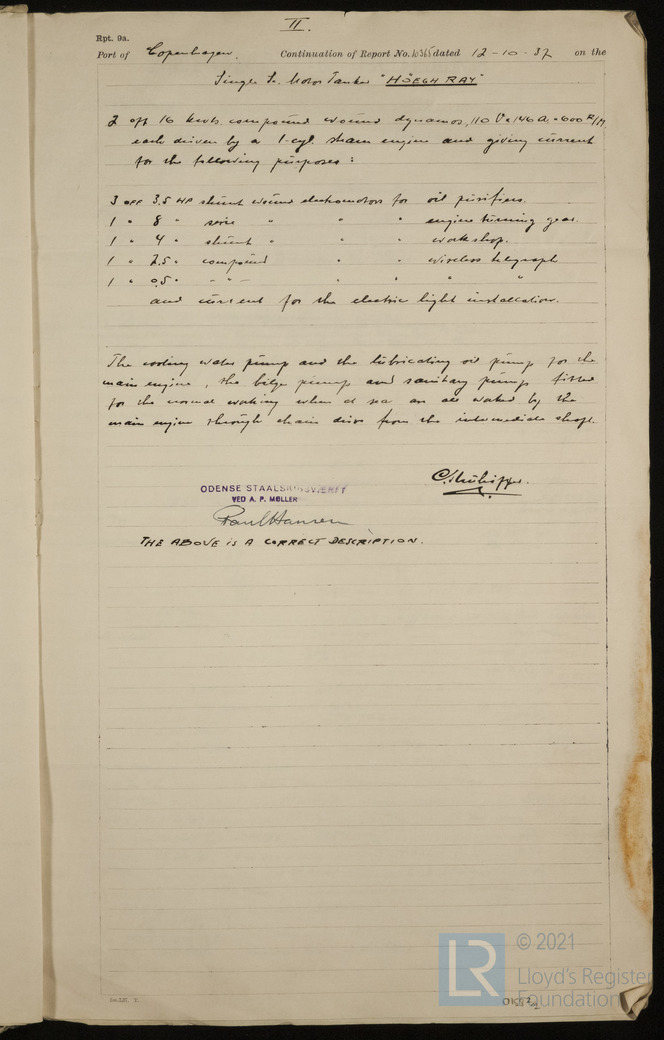 II.
Rpt. 9a.
Port of Copenhagen. Continuation of Report No. 10365 dated 12-10-37 on the
Single Sc. Motor Tanker "HÖEGH RAY"
2 off 16 kwts. compound wound dynamos, 110 V. 146 A. 600 R/M
each driven by a 1-cyl. steam engine and giving current
for the following purposes:
3 off 3,5 HP shunt wound electromotors for oil purifiers.
1 " 8 " serie " " " engine turning gear.
1 " 4 " shunt " " " workshop.
1 " 2,5 " compound " " wireless telegraph
1 " 0,5 " -"- " " " "
and current for the electric light installation.
The cooling water pump and the lubricating oil pump for the
main engine, the bilge pump and sanitary pump fitted
for the normal working when at sea are all worked by the
main engine through chain drive from the intermediate shaft.
ODENSE STAALSKIBSVÆRFT
VED A. P. MØLLER
Poul Hansen
THE ABOVE IS A CORRECT DESCRIPTION.
LR
© 2021
Lloyd's Register
Foundation